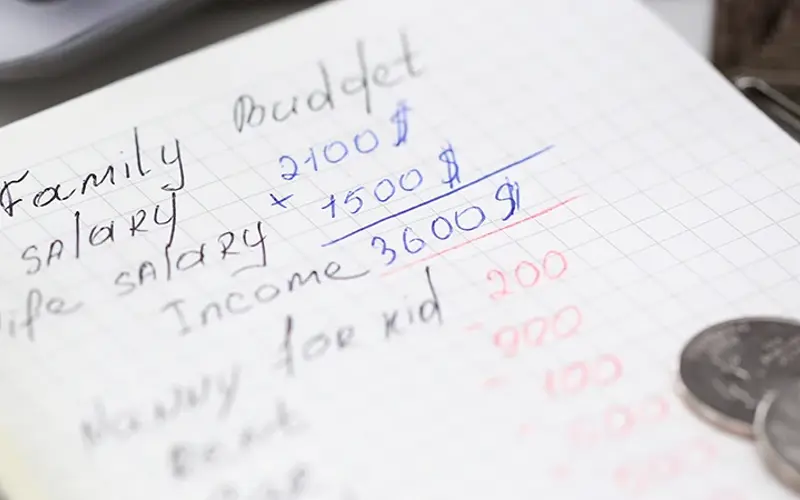 Family Budget
SAlARY 2100 $
+
wife SAlARY 1500 $
Income 3600 $
Nanny for kid 200
Rent - 900
- 100